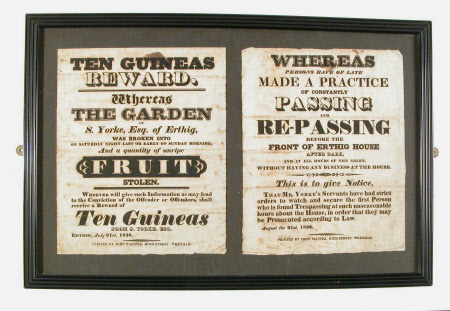 TEN GUINEAS
REWARD.
Whereas
THE GARDEN
OF
S. Yorke, Esq. of Erthig,
WAS BROKEN INTO
ON SATURDAY NIGHT LAST OR EARLY ON SUNDAY MORNING;
And a quantity of unripe
FRUIT
STOLEN.
WHOEVER will give such Information as may lead
to the Conviction of the Offender or Offenders, shall
receive a Reward of
Ten Guineas
FROM S. YORKE, ESQ.
ERTHIG, July 31st, 1828.
PRINTED BY JOHN PAINTER, HIGH-STREET, WREXHAM.
WHEREAS
PERSONS HAVE OF LATE
MADE A PRACTICE
OF CONSTANTLY
PASSING
AND
RE-PASSING
BEFORE THE
FRONT OF ERTHIG HOUSE
AFTER DARK,
AND AT ALL HOURS OF THE NIGHT,
WITHOUT HAVING ANY BUSINESS AT THE HOUSE.
This is to give Notice,
THAT MR. YORKE'S Servants have had strict
orders to watch and secure the first Person
who is found Trespassing at such unseasonable
hours about the House, in order that they may
be Prosecuted according to Law.
August the 21st, 1828.
PRINTED BY JOHN PAINTER, HIGH-STREET, WREXHAM.